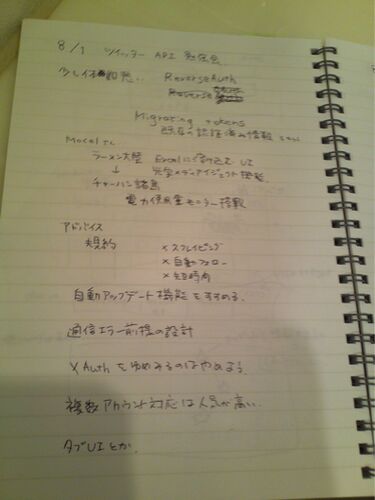 8/1 ツイッター API 勉強会
少し遅 ReverseAuth
Reverse
Migrating tokens
既存の認証済み情報
Mocelさん
ラーメン大陸 Excelに溶け込む UI
↓ 完全メディアイジェクト機能
チャーハン諸島
電力使用量モニター搭載
アドバイス
規約 × スクレイピング
× 自動フォロー
× 短時間
自動アップデート機能をすすめる。
通信エラー前提の設計
XAuth をゆめみるのはやめよう
複数アカウント対応は人気が高い.
タブUIとか.